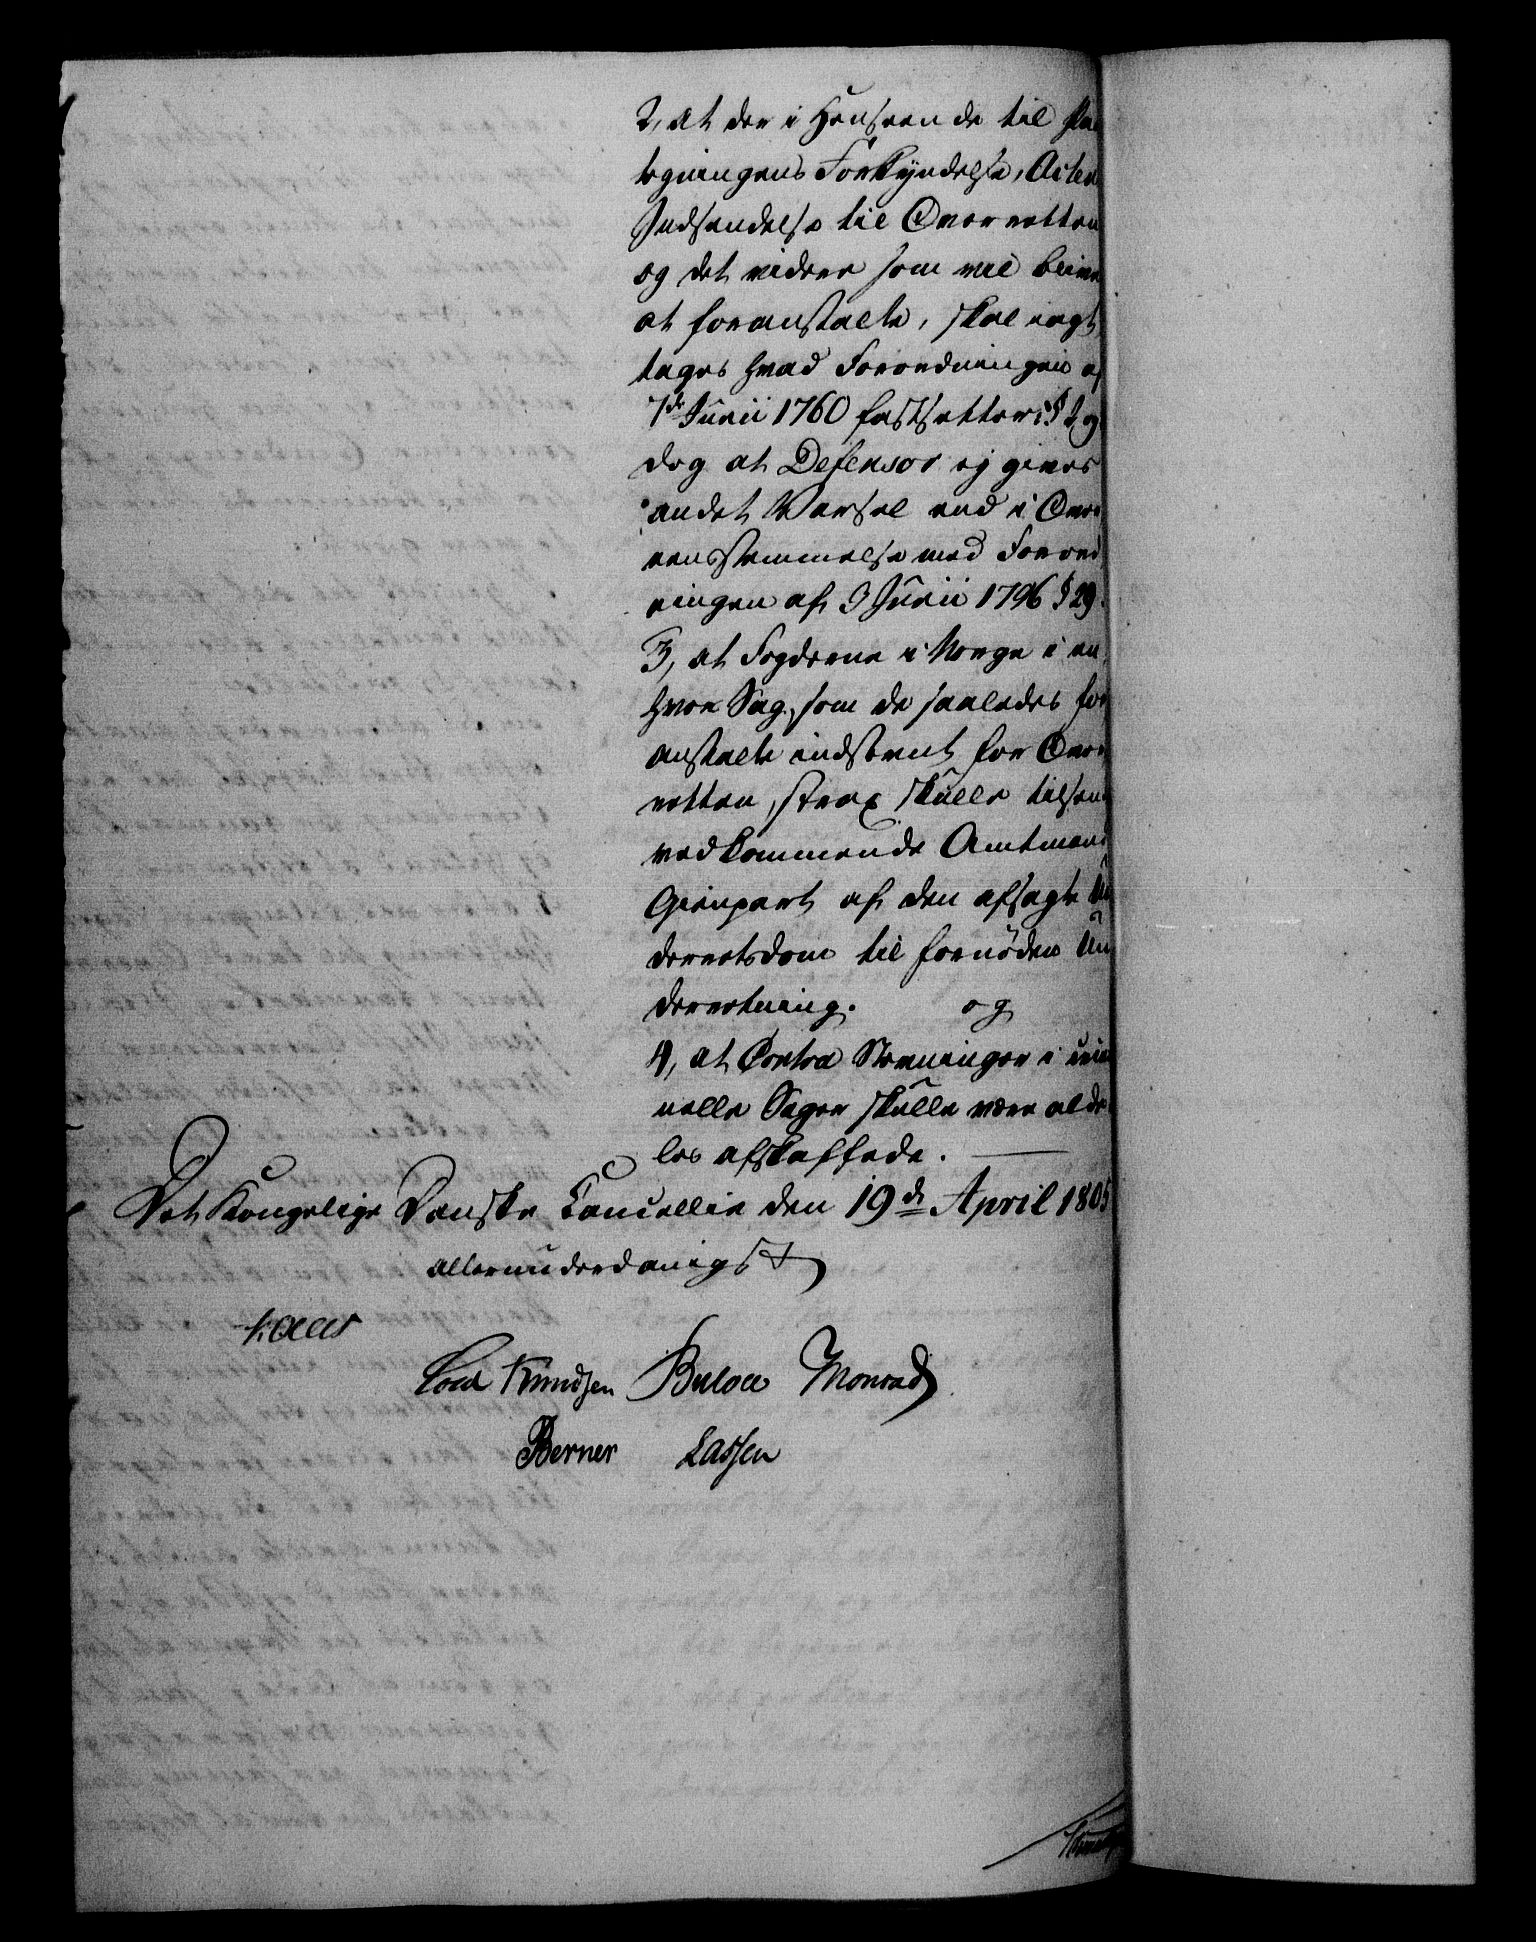 2, at der i Henseende til Paa
tegningens Forkyndelse, Acten
Indsendelse til Overretten
og det videre som vil blive
at foranstalte, skal iagt
tages hvad Forordningen af
7de Junii 1760 fastsetter i §
dog at Defensor ej gives
andet Varsel end i Over
eensstemmelse med Forord
ningen af 3 Junii 1796 § 29.
3, at Fogderne i Norge i en
hver Sag, som de saaledes for
anstalte indstevnt for Over
retten, strax skulle tilsende
vedkommende Amtmand
Gienpart af den afsagte Un
derretsdom til fornøden Un
derretning. og
4, at Contra Stevninger i crimi
nelle Sager skulle være aldee
les afskaffede.
Det Kongelige Danske Cancellie den 19de April 1805
allerunderdanigst
Kaas
Cold Knudsen Bülow Monrad
Berner Lassen